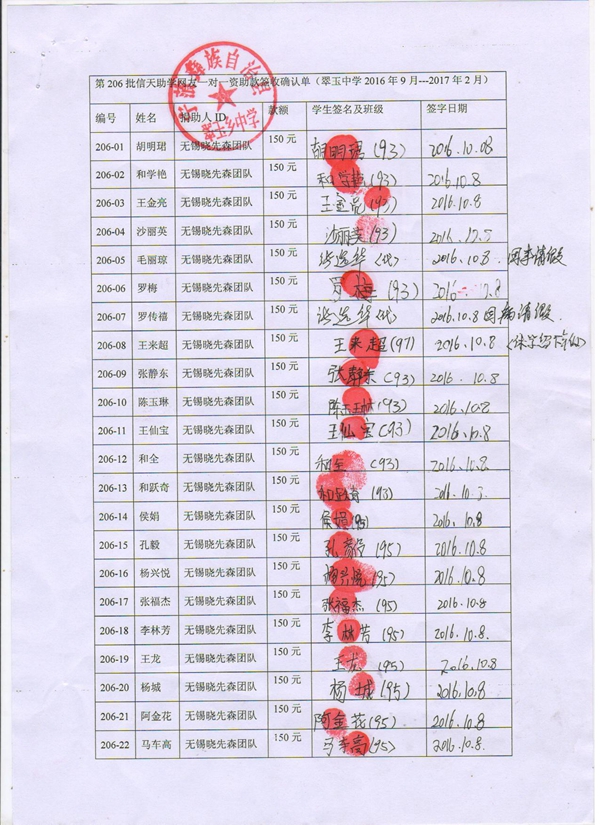 第206批信天助学网友一对一资助款签收确认单（翠玉中学2016年9月---2017年2月）
编号 姓名 捐助人ID 款额 学生签名及班级 签字日期
206-01 胡明珺 无锡晓先森团队 150元 胡明珺(93) 2016.10.08
206-02 和学艳 无锡晓先森团队 150元 和学艳(93) 2016.10.8
206-03 王金亮 无锡晓先森团队 150元 王金亮(93) 2016.10.8
206-04 沙丽英 无锡晓先森团队 150元 沙丽英(93) 2016.
206-05 毛丽琼 无锡晓先森团队 150元 (代) 2016.10.8 因事请假
206-06 罗梅 无锡晓先森团队 150元 罗梅(93) 2016 .8
206-07 罗传禧 无锡晓先森团队 150元 代 2016.10.8 因病请假
206-08 王来超 无锡晓先森团队 150元 王来超(97) 2016.10.8
206-09 张静东 无锡晓先森团队 150元 张静东(93) 2016.10.8
206-10 陈玉琳 无锡晓先森团队 150元 陈玉琳(93) 2016.10.8
206-11 王仙宝 无锡晓先森团队 150元 王仙宝(93) 2016.10.8
206-12 和全 无锡晓先森团队 150元 和全(93) 2016.10.8
206-13 和跃奇 无锡晓先森团队 150元 (93) 2016.10.
206-14 侯娟 无锡晓先森团队 150元 侯娟 2016.10.8
206-15 孔毅 无锡晓先森团队 150元 孔毅(95) 2016.10.8
206-16 杨兴悦 无锡晓先森团队 150元 杨兴悦(95) 2016.10.8
206-17 张福杰 无锡晓先森团队 150元 张福杰(95) 2016.10.8
206-18 李林芳 无锡晓先森团队 150元 李林芳(95) 2016.10.8.
206-19 王龙 无锡晓先森团队 150元 王龙(95) 2016.10.8
206-20 杨城 无锡晓先森团队 150元 杨城(95) 2016.10.8
206-21 阿金花 无锡晓先森团队 150元 阿金花(95) 2016.10.8
206-22 马车高 无锡晓先森团队 150元 马车高(95) 2016.10.8.